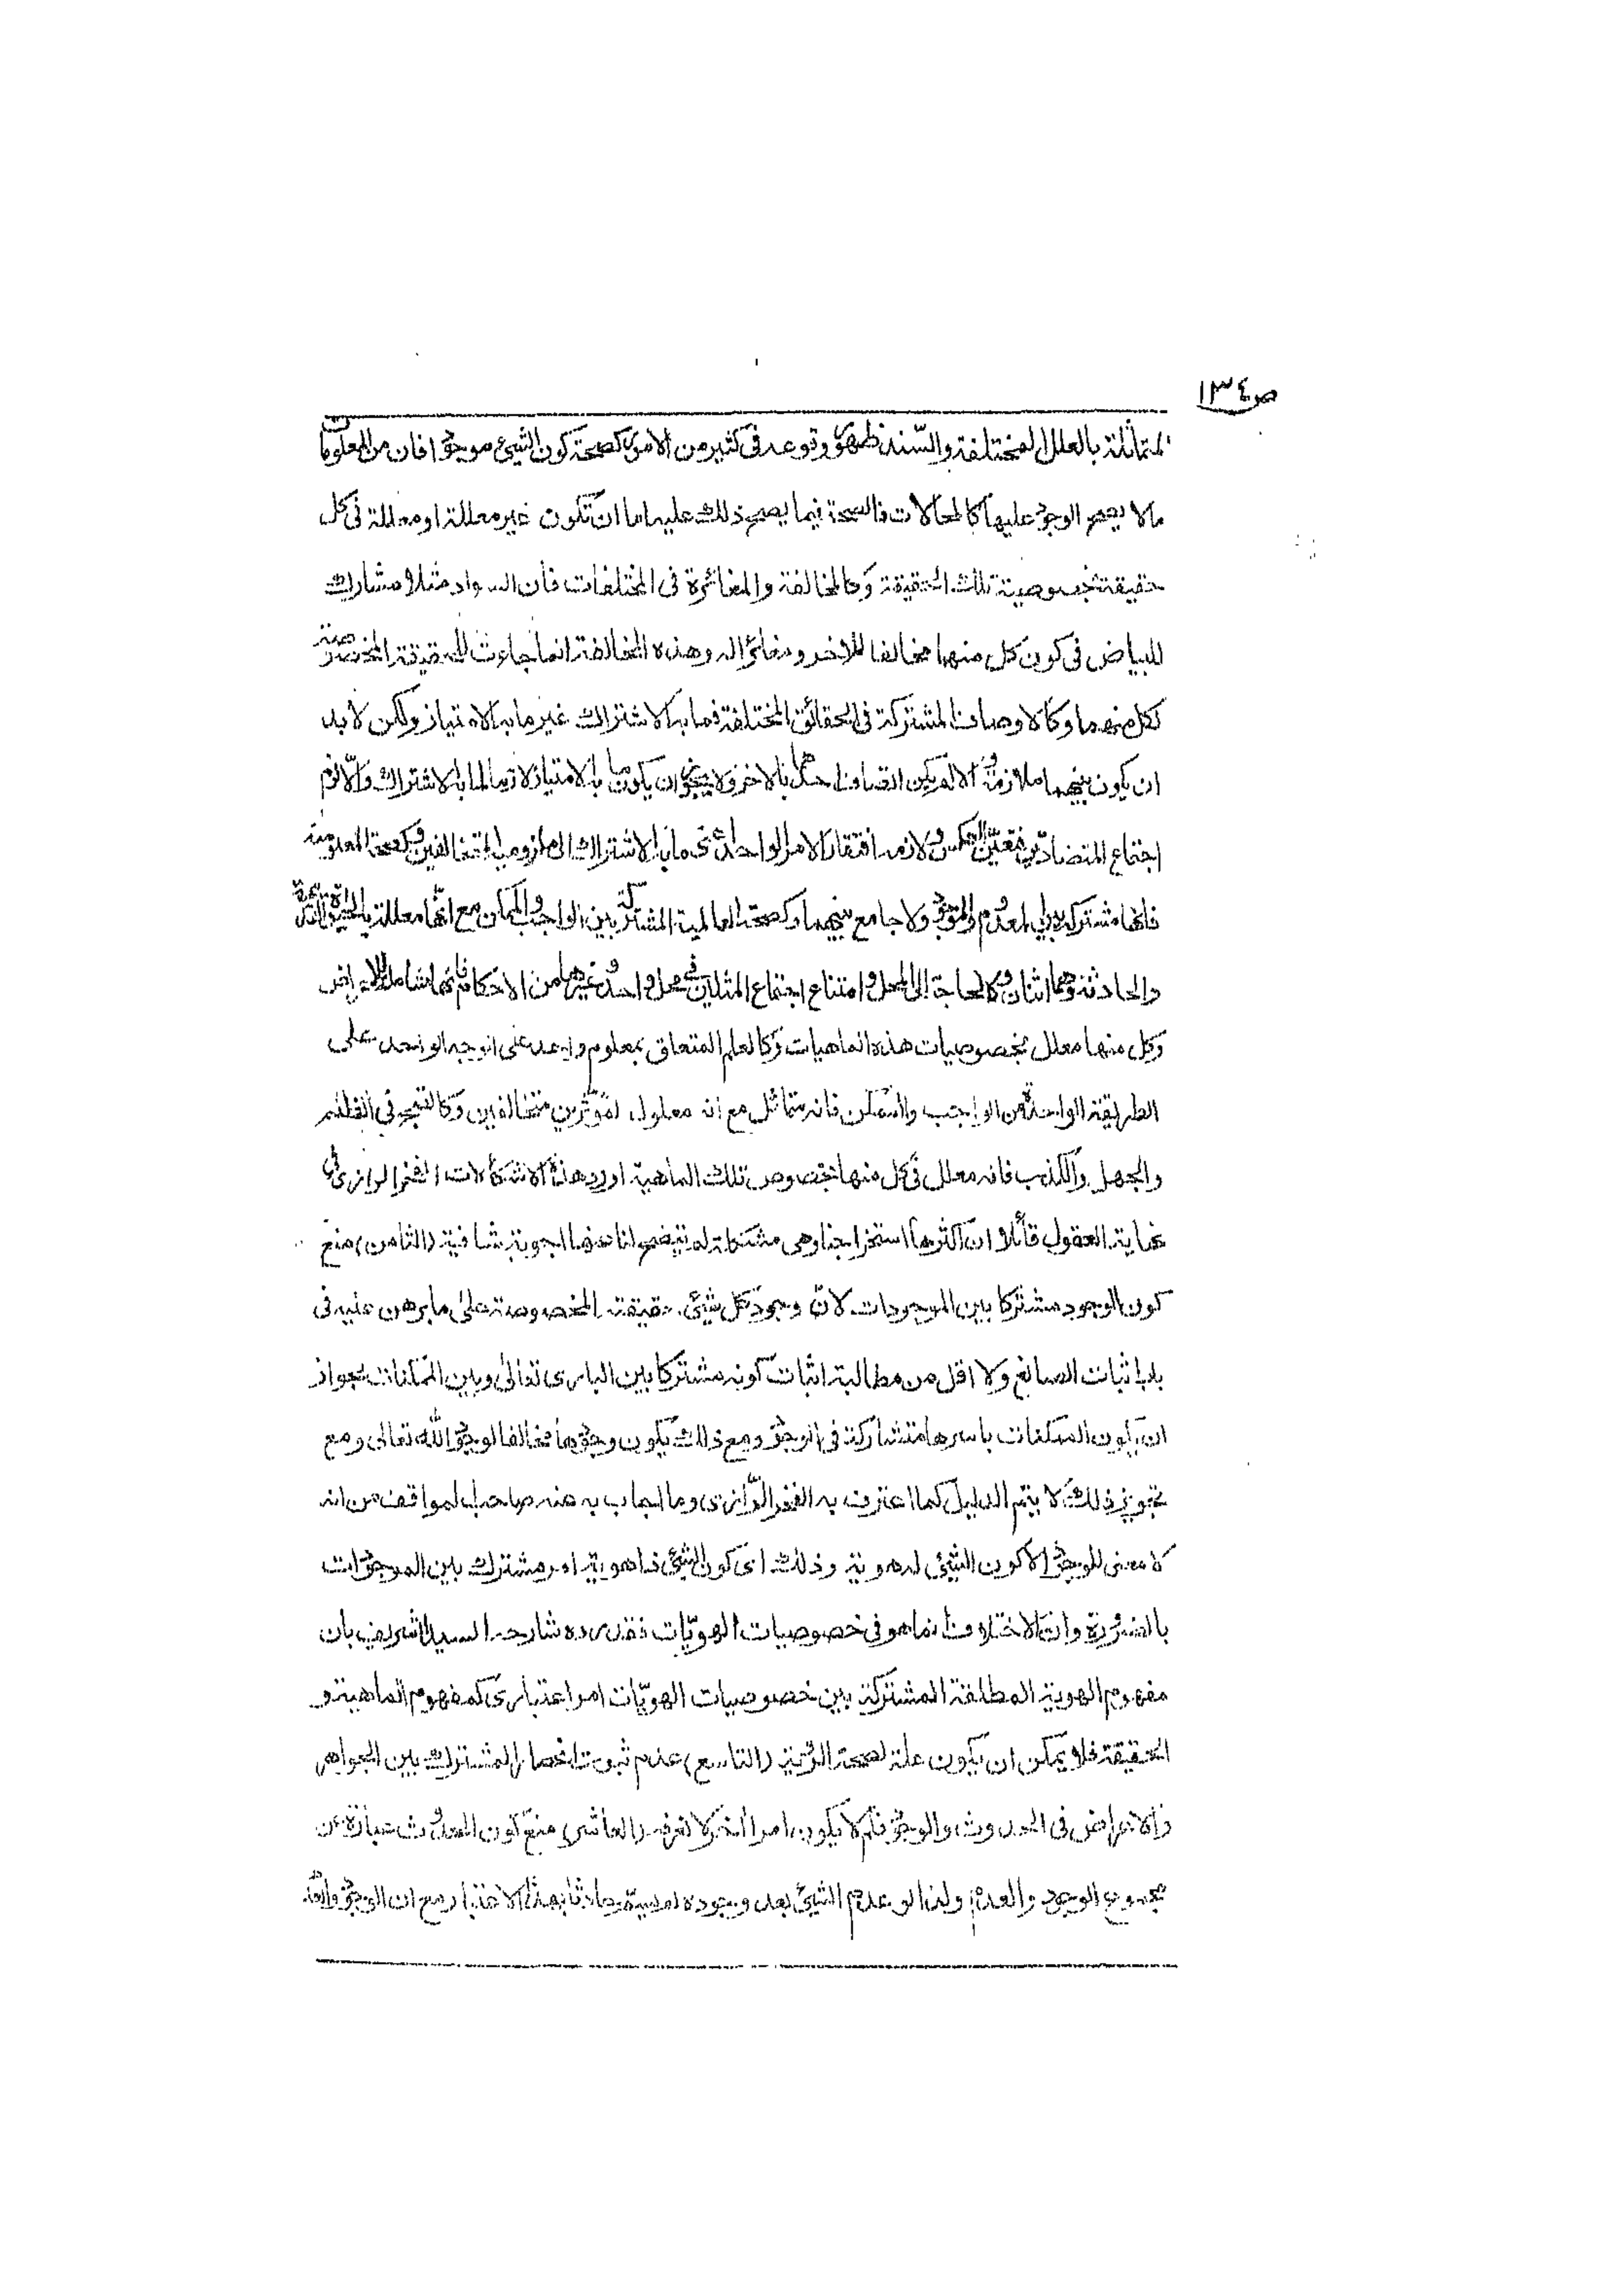 ص١٣٤
المتماثلة بالعلل المختلفة والسّند ظهور وقوعه فى كثير من الامور كصحة كون الشيئ موجودا فان من المعلومات
مالا يصح الوجود عليها كالمحالات فالصحة فيما يصح ذلك عليه اما ان تكون غير معللة او معللة فى كل
حقيقة بخصوصية تلك الحقيقة وكالمخالفة والمغائرة فى المختلفات فان السواد مثلا مشارك
للبياض فى كون كل منهما مخالفا للاخر ومغائرا له وهذه المخالفة انما جاءت للحقيقة المخصوصة
لكل منهما وكالاوصاف المشتركة فى الحقائق المختلفة فما به الاشتراك غير ما به الامتياز ولكن لا بد
ان يكون بينهما ملازمة والا لم يكن اتصاف احدهما بالاخر ولا يجوز ان يكون ما به الامتياز لازما لما به الاشتراك والّا لزم
اجتماع المتضادين فتعيّن العكس ولازمه افتقار الامر الواحد اى ما به الاشتراك الى ملزومية المتخالفين وكصحة المعلومية
فانها مشتركة بين المعدوم والموجود ولا جامع بينهما وكصحة العالمية المشتركة بين الواجب والممكن مع انها معللة بالحيوة القديمة
والحادثة وهما اثنان وكالحاجة الى المحل وامتناع اجتماع المثلين فى محل واحد وغيرهما من الاحكام فانها شاملة للاعراض
وكل منها معلل بخصوصيات هذه الماهيات وكالعلم المتعلق بمعلوم واحد على الوجه الواحد على
الطريقة الواحدة من الواجب والممكن فانه متماثل مع انه معلول لمؤثرين متخالفين وكالقبح فى الظلم
والجهل والكذب فانه معلل فى كل منها بخصوص تلك الماهية اورد هذه الاشكالات الفخر الرازى فى
نهاية العقول قائلا ان اكثرها استخراجنا وهى مشكلة لم يتضح لنا عنها اجوبة شافية (الثامن) منع
كون الوجود مشتركا بين الموجودات لانّ وجود كل شيئ حقيقته المخصوصة على ما برهن عليه فى
باب اثبات الصانع ولا اقل من مطالبة اثبات كونه مشتركا بين البارى تعالى وبين الممكنات بجواز
ان يكون الممكنات باسرها متشاركة فى الوجود ومع ذلك يكون وجودها مخالفا لوجود الله تعالى ومع
تجويز ذلك لا يتم الدليل كما اعترف به الفخر الرّازى وما اجاب به عنه صاحب المواقف من انه
لا معنى للوجود الا كون الشيئ له هوية وذلك اى كون الشيئ ذا هوية امر مشترك بين الموجودات
بالضرورة وان الاختلاف انما هو فى خصوصيات الهويّات فقد رده شارحه السيد الشريف بان
مفهوم الهوية المطلقة المشتركة بين خصوصيات الهويّات امر اعتبارى كمفهوم الماهية و
الحقيقة فلا يمكن ان يكون علة لصحة الرؤية (التاسع) عدم ثبوت انحصار المشترك بين الجواهر
والاعراض فى الحدوث والوجود فلم لا يكون امرا اخر لا نعرفه (العاشر) منع كون الحدوث عبارة عن
مجموع الوجود والعدم ولذا لو عدم الشيئ بعد وجوده لم يسمّ حادثا بهذا الاعتبار مع ان الوجود والعدم